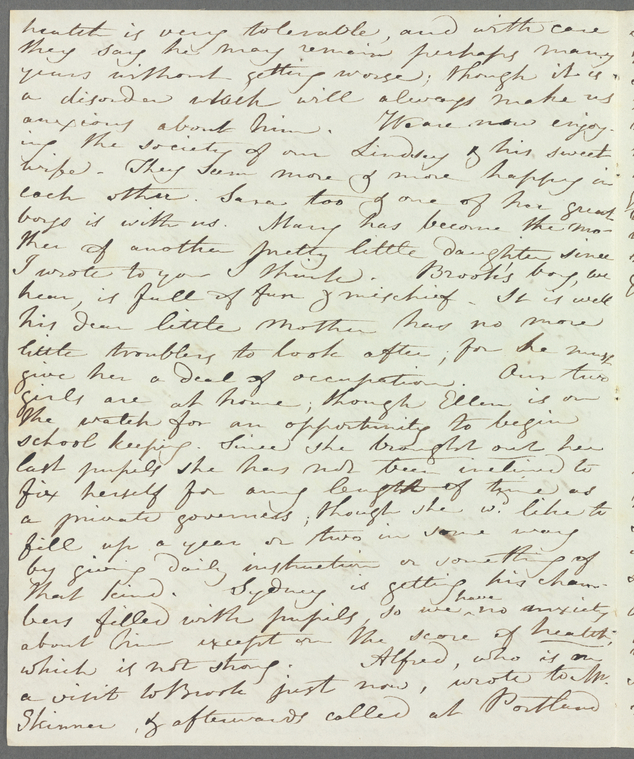 health is very tolerable, and with care
they say he may remain perhaps many
years without getting worse; though it is
a disorder which will always make us
anxious about him. We are now enjoy-
ing the society of our Lindsey & his sweet
wife - They seem more & more happy in
each other. Sara too & one of her great
boys is with us. Mary has become the mo-
ther of another pretty little daughter since
I wrote to you I think. Brook's boy, we
hear, is full of fun & mischief - It is well
his dear little mother has no more
little troublers to look after, for he must
give her a deal of occupation. Our two
girls are at home; though Ellen is on
the watch for an opportunity to begin
school keeping. Since she brought out her
last pupils she has not been inclined to
fix herself for any length of time as
a private governess; though she wd. like to
fill up a year or two in some way
by giving daily instruction or something of
that kind. Sydney is getting his cham-
bers filled with pupils, so we have no anxiety
about him except on the score of health,
which is not strong. Alfred, who is on
a visit to Brook just now, wrote to Mr.
Skinner, & afterwards called at Portland